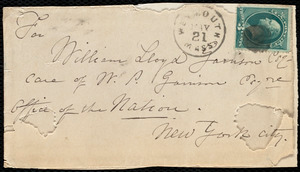 WEYMOUTH
MAY
21
MASS.
For
William Lloyd Garrison Esq
Care of W. P. Garrison Esqre
Office of the Nation.
New York City.